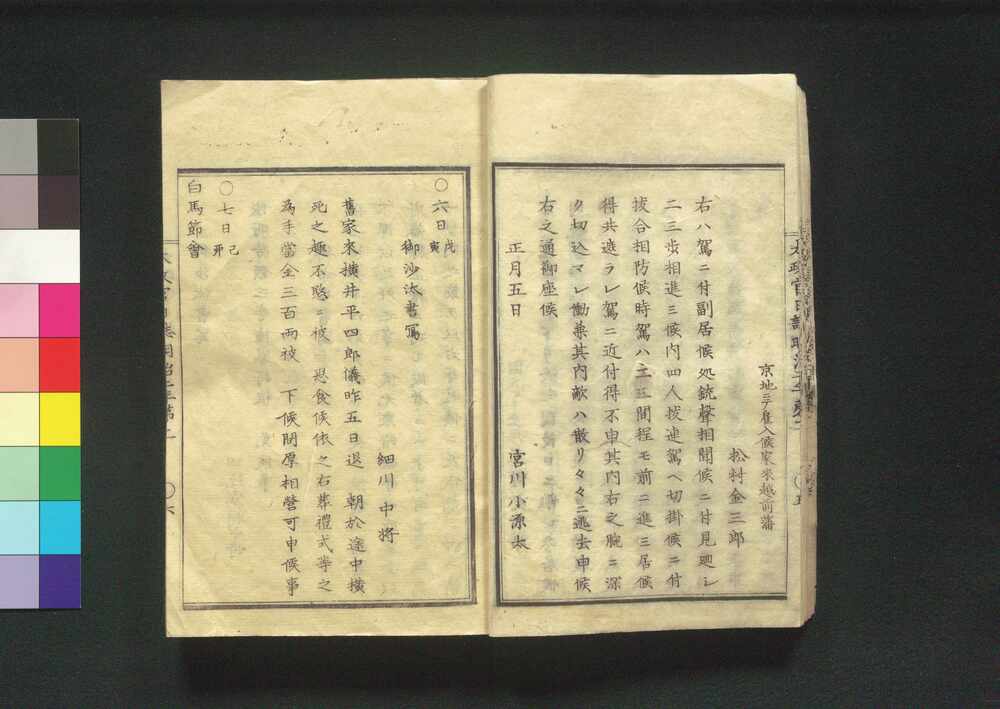 京地ニテ雇入候家来越前藩
松村金三郎
右ハ駕ニ付副居候処銃聲相聞候ニ付見廻シ
二三歩相進ミ候内四人拔連駕ヘ切掛候ニ付
拔合相防候時駕ハ二三間程モ前ニ進ミ居候
得共遮ラレ駕ニ近付得不申其内右之腕ニ深
ク切込マレ働兼其内敵ハ散リ々々ニ逃去申候
右之通御座候
正月五日
宮川小源太
〇六日戊寅
御沙汰書寫
細川中將
舊家來横井平四郎儀昨五日退 朝於途中横
死之趣不愍ニ被 思食候依之右葬禮式等之
為手當金三百両被 下候間厚相營可申候事
〇七日己卯
白馬節會